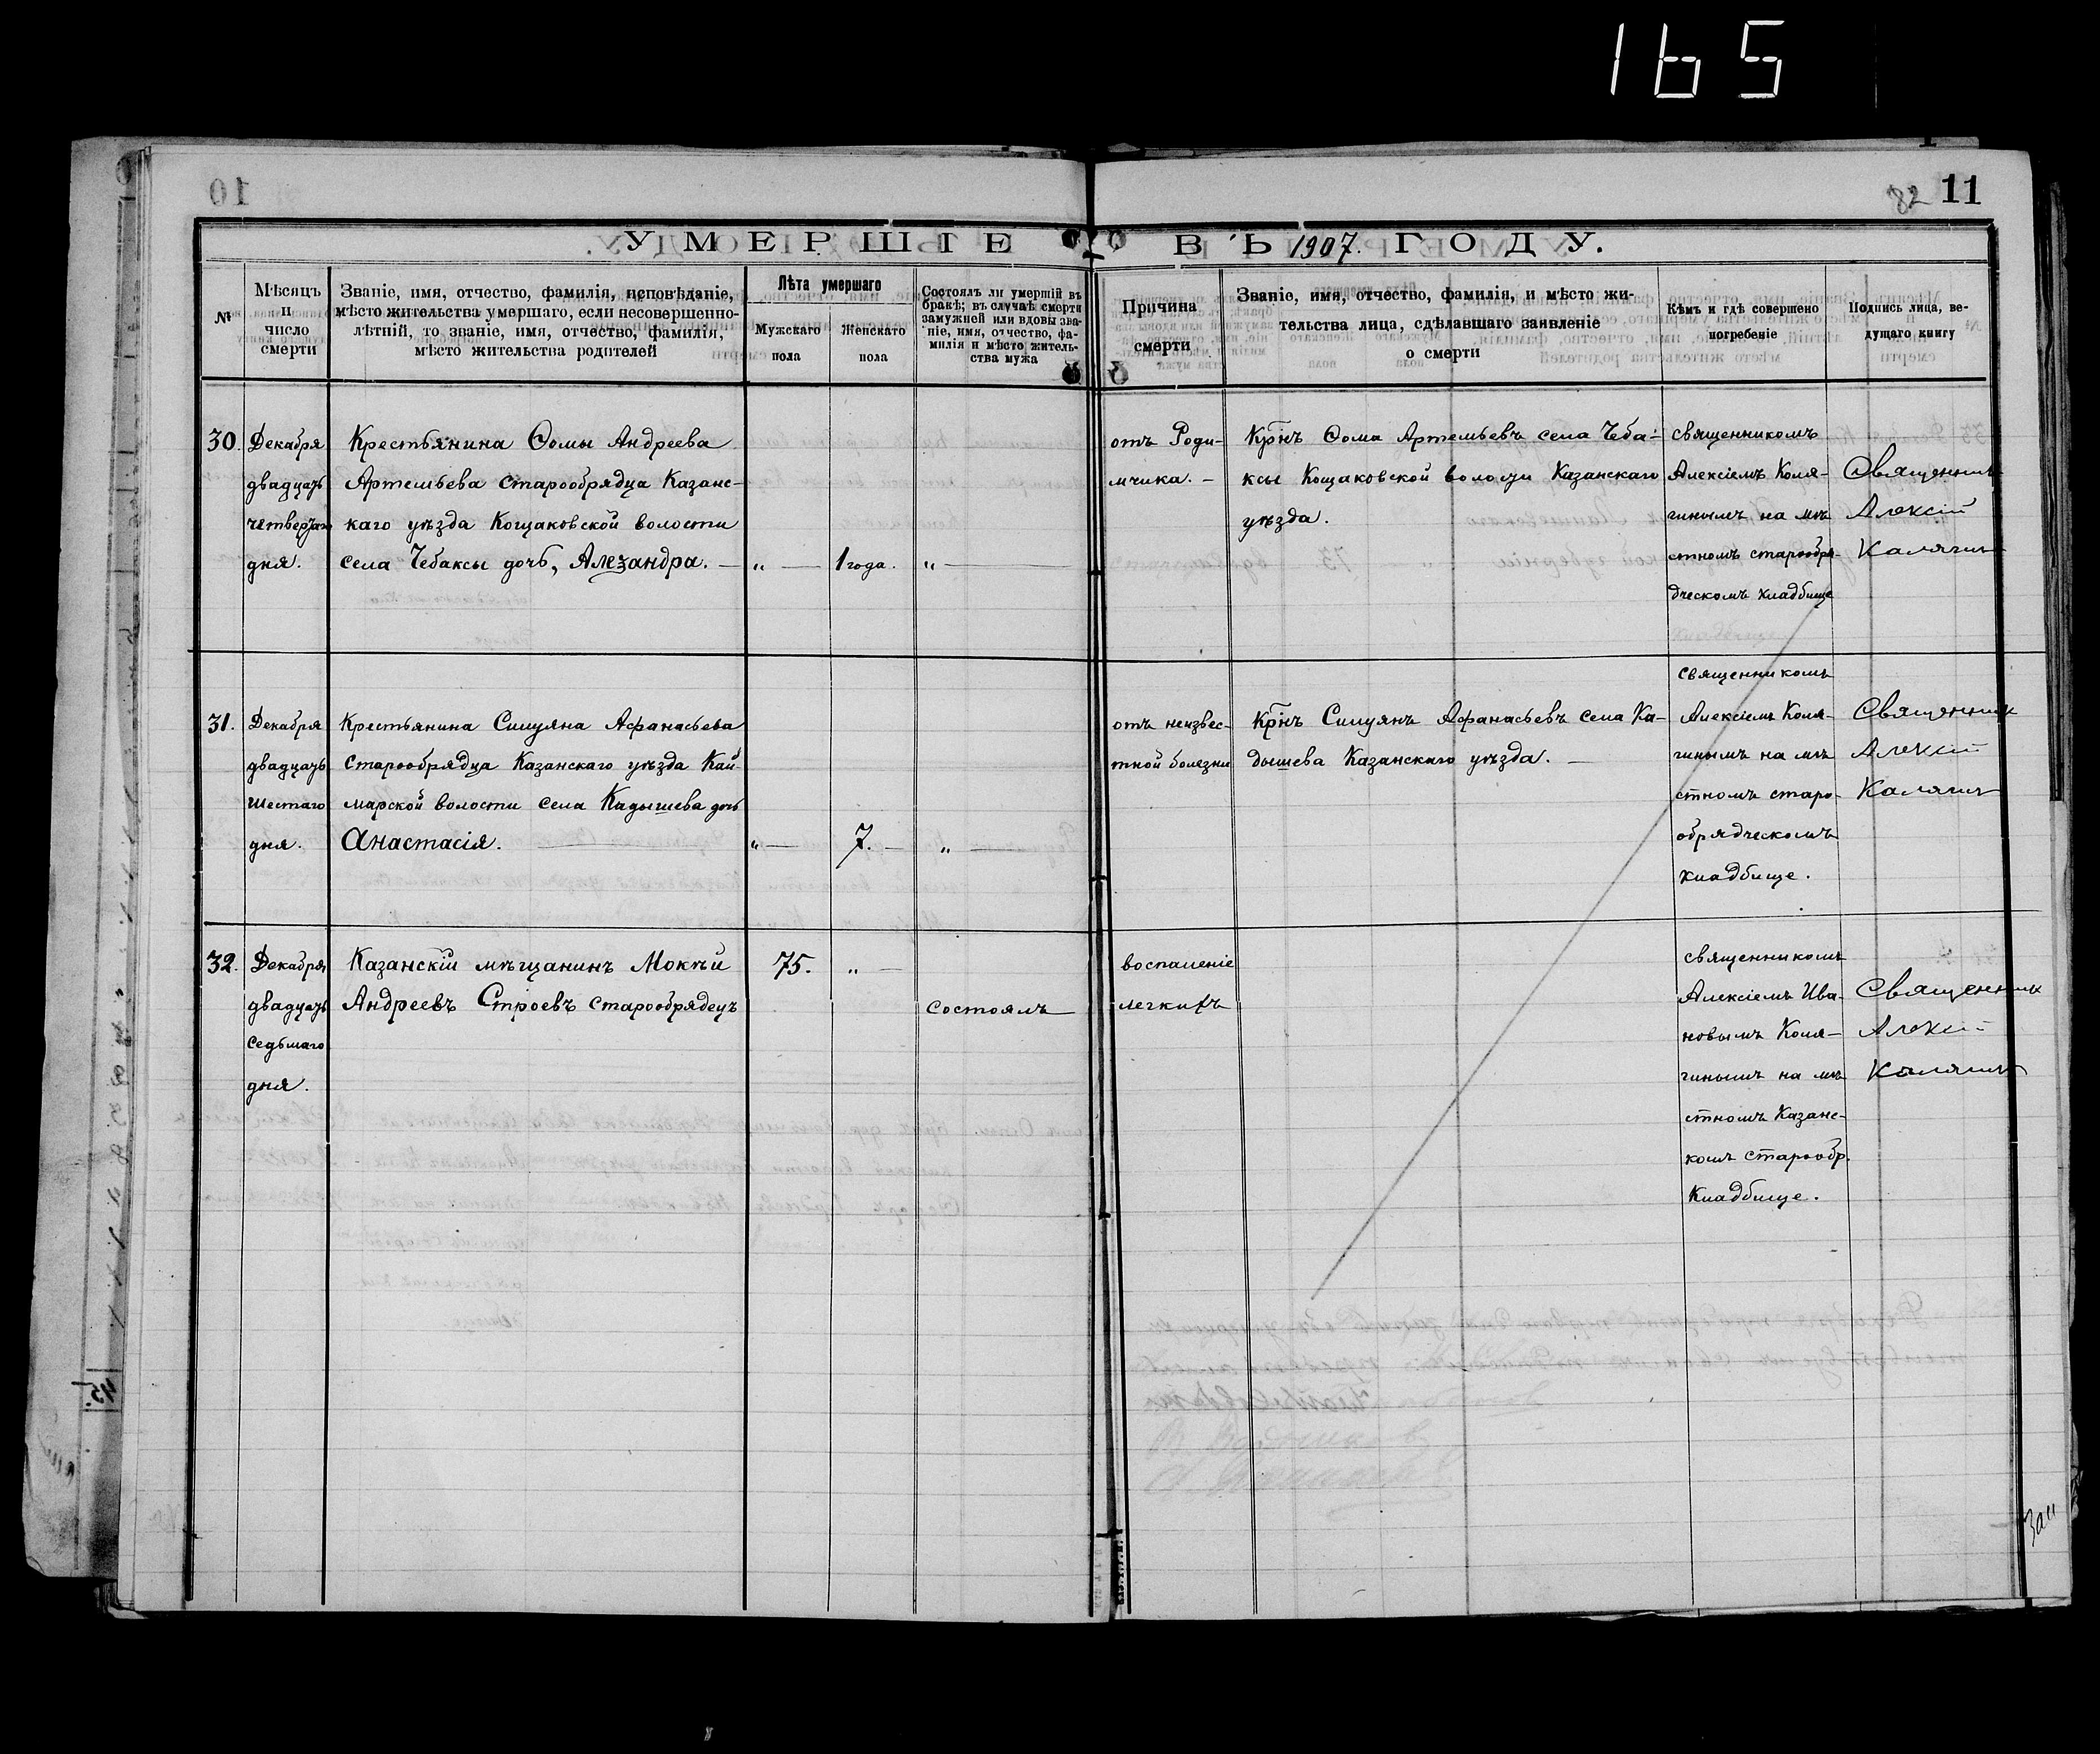 165
10
82 11
УМЕРШІЕ ВЪ 1907. ГОДУ.
№
Мѣсяцъ
и
число
смерти
Званіе, имя, отчество, фамилія, исповѣданіе,
мѣсто жительства умершаго, если несовершенно-
лѣтній, то званіе, имя, отчество, фамилія,
мѣсто жительства родителей
Лѣта умершаго
Мужскаго
пола
Женскаго
пола
Состоялъ ли умершій въ
бракѣ; въ случаѣ смерти
замужней или вдовы зва-
ніе, имя, отчество, фа-
милія и мѣсто житель-
ства мужа
Причина
смерти
Званіе, имя, отчество, фамилія, и мѣсто жи-
тельства лица, сдѣлавшаго заявленіе
о смерти
Кѣмъ и гдѣ совершено
погребеніе
Подпись лица, ве-
дущаго книгу
30.
Декабря
двадцать
четвертаго
дня.
Крестьянина Ѳомы Андреева
Артемьева старообрядца Казанс-
каго уѣзда Кощаковской волости
села Чебаксы дочь, Александра. —
„ —
1 года.
„ —
отъ Роди-
мчика. —
Крĩнъ Ѳома Артемьевъ села Чеба-
ксы Кощаковской волости Казанскаго
уѣзда.
священникомъ
Алексіемъ Коля-
гинымъ на мѣ-
стномъ старообря-
дческомъ кладбище
Священникъ
Алексій
Калягинъ
31.
Декабря
двадцать
шестаго
дня.
Крестьянина Силуяна Афанасьева
старообрядца Казанскаго уѣзда Кай-
марской волости села Кадышева дочь
Анастасія.
„ —
7. —
„ —
отъ неизвес-
тной болезни
Крĩнъ Силуянъ Афанасьевъ села Ка-
дышева Казанскаго уѣзда. —
священникомъ
Алексіемъ Коля-
гинымъ на мѣ-
стномъ старо-
обрядческомъ
кладбище.
Священникъ
Алексій
Калягинъ
32.
Декабря
двадцать
седьмаго
дня.
Казанскій мѣщанинъ Мокѣй
Андреевъ Строевъ старообрядецъ
75.
„ —
состоялъ
воспаленіе
легкихъ
священникомъ
Алексіемъ Ива-
новымъ Коля-
гинымъ на мѣ-
стномъ Казанс-
комъ старообр.
Кладбище.
Священникъ
Алексій
Калягинъ